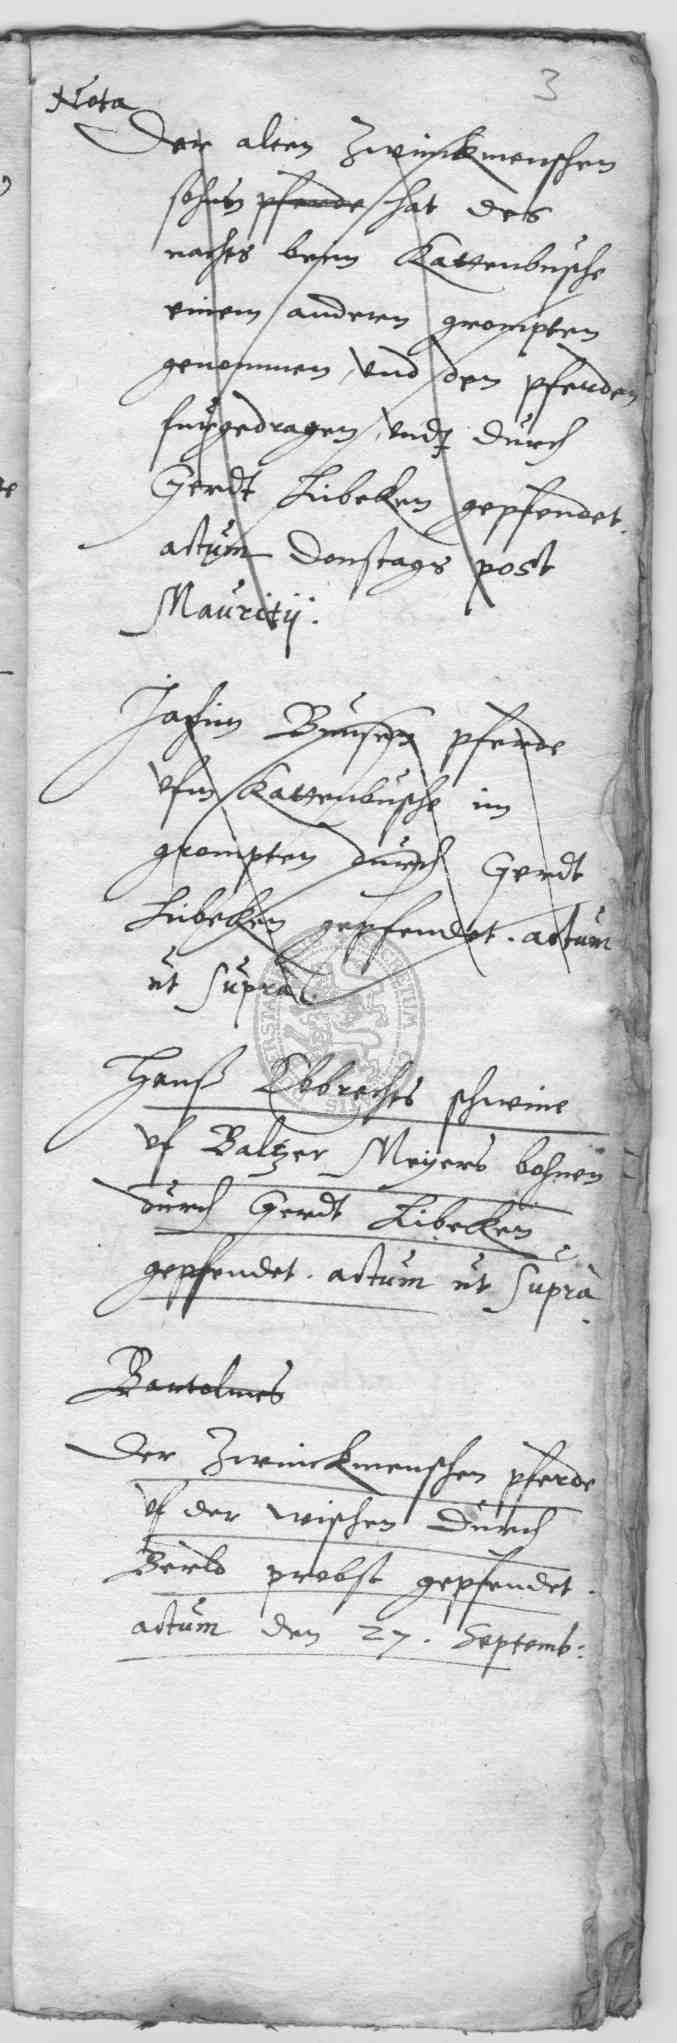 3
Nota
Der alten Zwinckmenschen
sohns pferde hat des
nachts beim Kattenbusche
einem anderen grompten
genommen, und den pferden
furgedragen, undt durch
Gerdt Lubeken gepfendet.
actum Donstags post
Mauritij:
Jochim pferde
ufm Kattenbusche im
grompten durch Gerdt
Lubeken gepfendet. actum
ut supra.
Hanß Ebbrechts schweine
uf Baltzer Meyers bohnen
durch Gerdt Libecken
gepfendet. actum ut supra
Bartolmes
Der Zwinckmenschen pferde
uf der wischen durch
probst gepfendet.
actum den 27. Septemb: